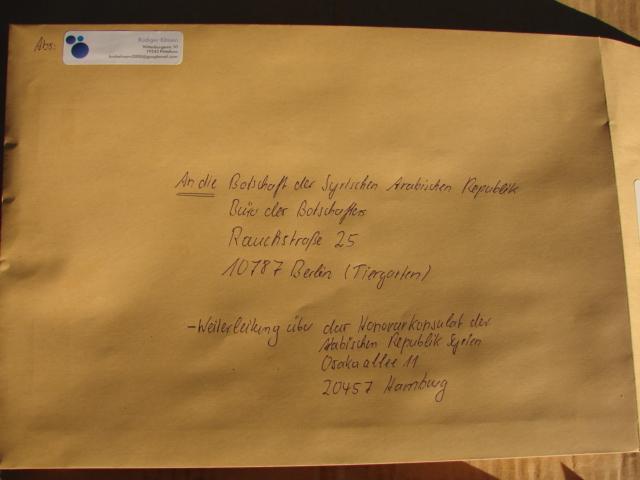 Abs:
Rüdiger
19243
An die Botschaft der Syrischen Arabischen Republik
Büro der Botschafters
Rauchstraße 25
10787 Berlin (Tiergarten)
- Weiterleitung über das Honorarkonsulat der
Arabischen Republik Syrien
Osakaallee 11
20457 Hamburg